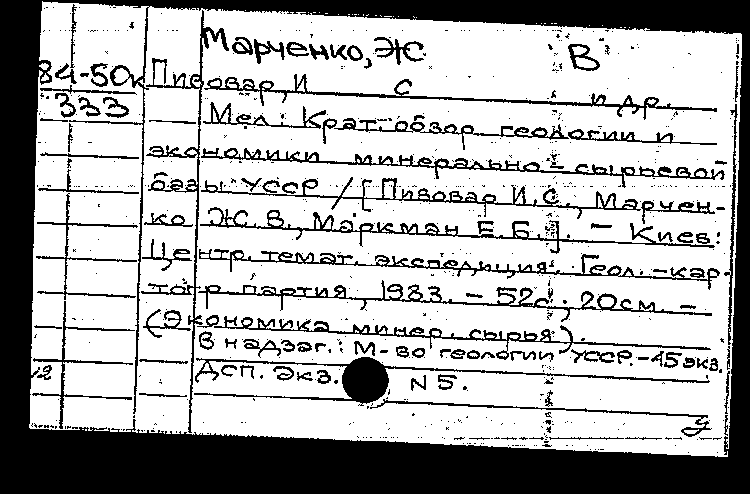 Марченко, Ж В
84-50к Пивовар, И С и др.
333 Мел: Крат. обзор геологии и
экономики минерально-сырьевой
базы УССР / [Пивовар И.С., Марчен-
ко Ж.В., Маркман Е.Б.]. - Киев:
Центр. темат. экспедиция. Геол.-кар-
тогр. партия, 1983. - 52с.; 20см. -
(Экономика минер. сырья).
В надзаг.: М-во геологии УССР. - 45 экз.
12 ДСП. Экз. N 5.
У